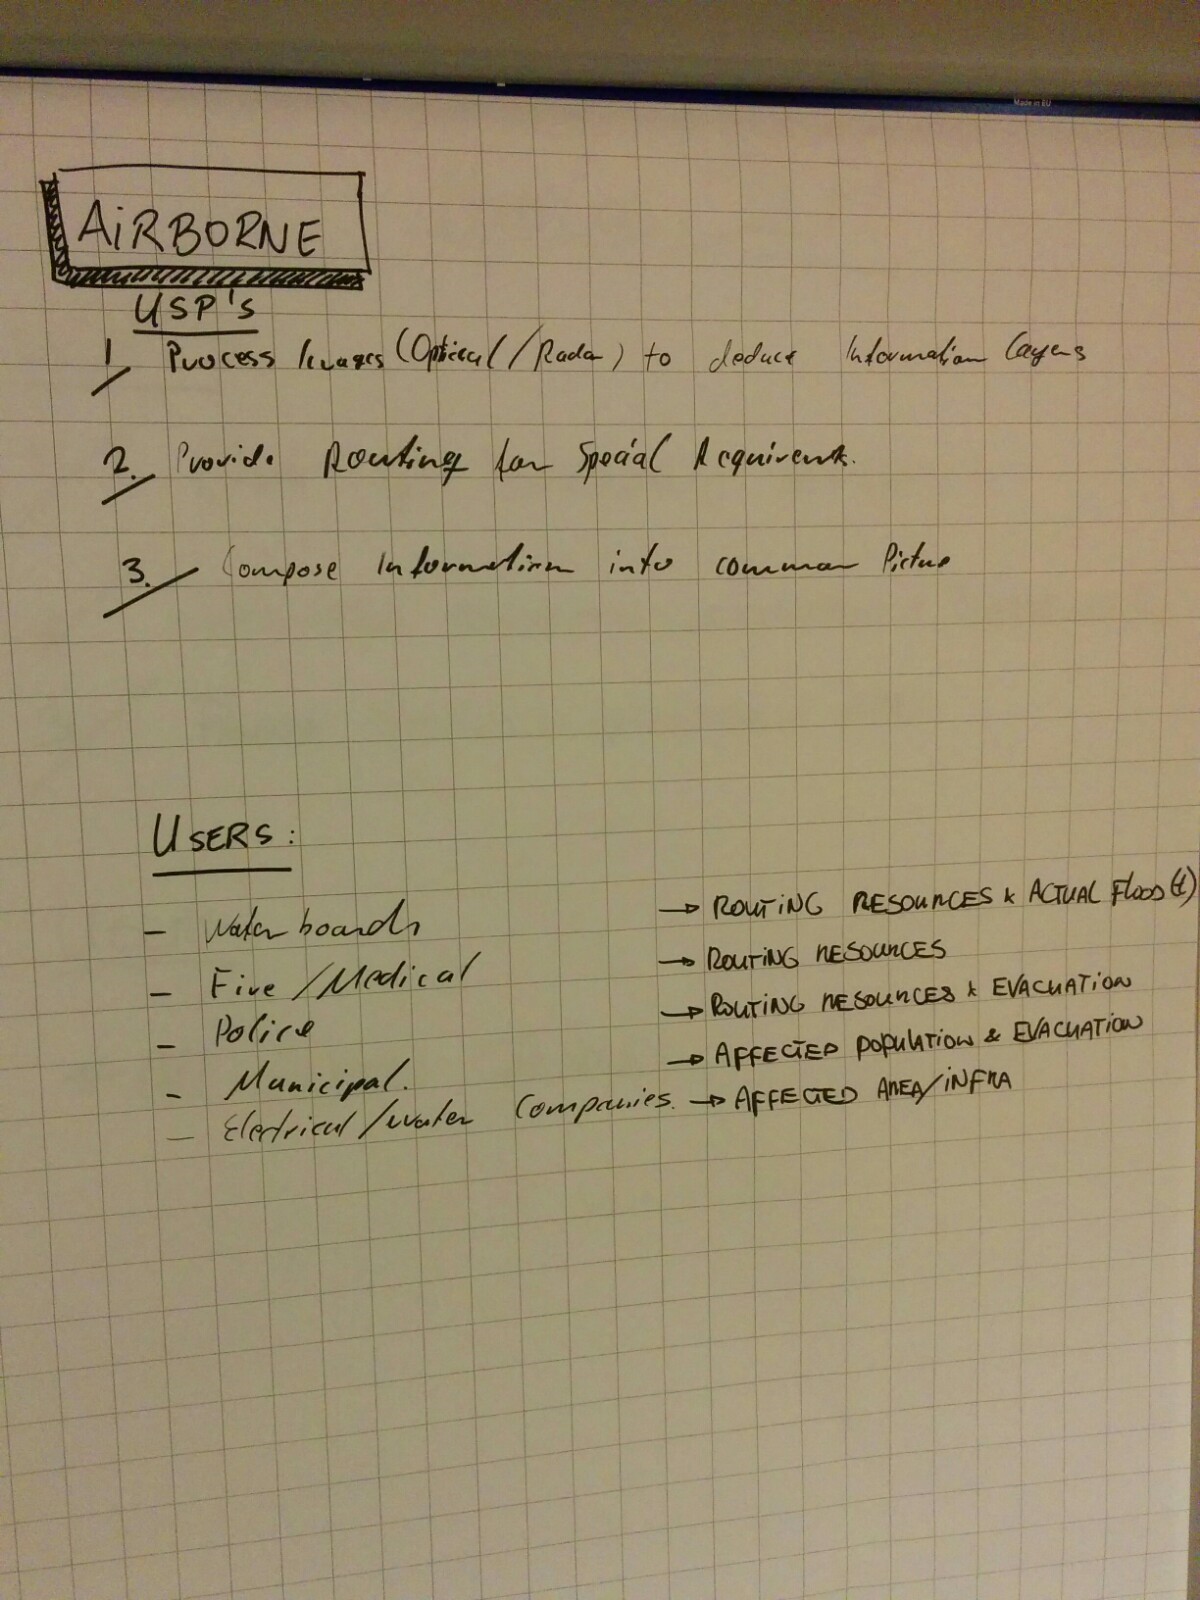 Made in EU
AiRBORNE
USP's
1 Process Images (Optical/Radar) to deduce Information Layers
2. Provide Routing for Special Requirements.
3. Compose Information into common Picture
USERS:
- Water boards → ROUTiNG RESOURCES & ACTUAL FLOOD
- Fire/Medical → ROUTiNG RESOURCES
- Police → ROUTiNG RESOURCES & EVACUATION
- Municipal. → AFFECTED POPULATION & EVACUATION
- Electrical/water Companies. → AFFECTED AREA/iNFRA